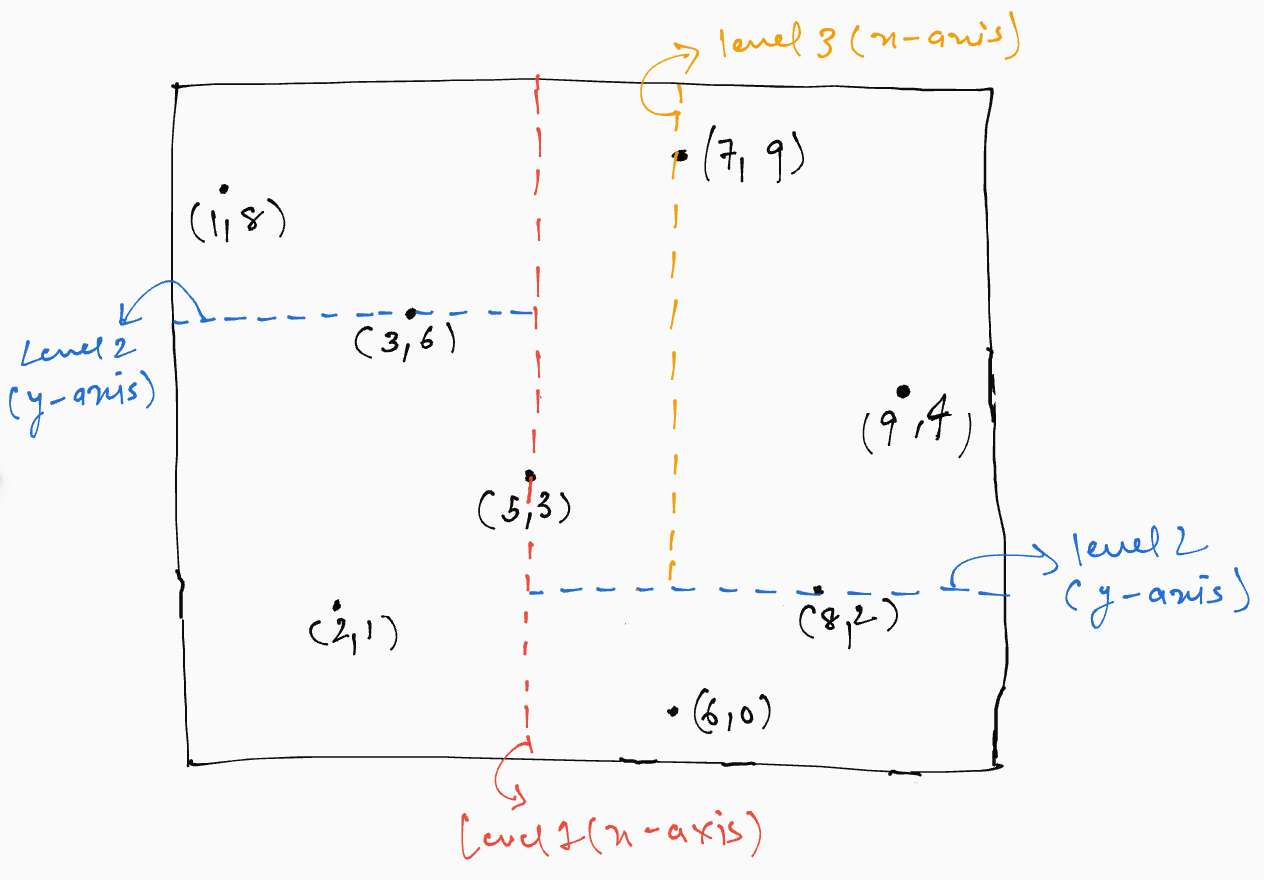 level 3 (x-axis)
(7, 9)
(1,8)
(3,6)
Level 2
(y-axis)
(9,4)
(5,3)
level 2
(y-axis)
(8,2)
(2,1)
(6,0)
Level 1 (x-axis)